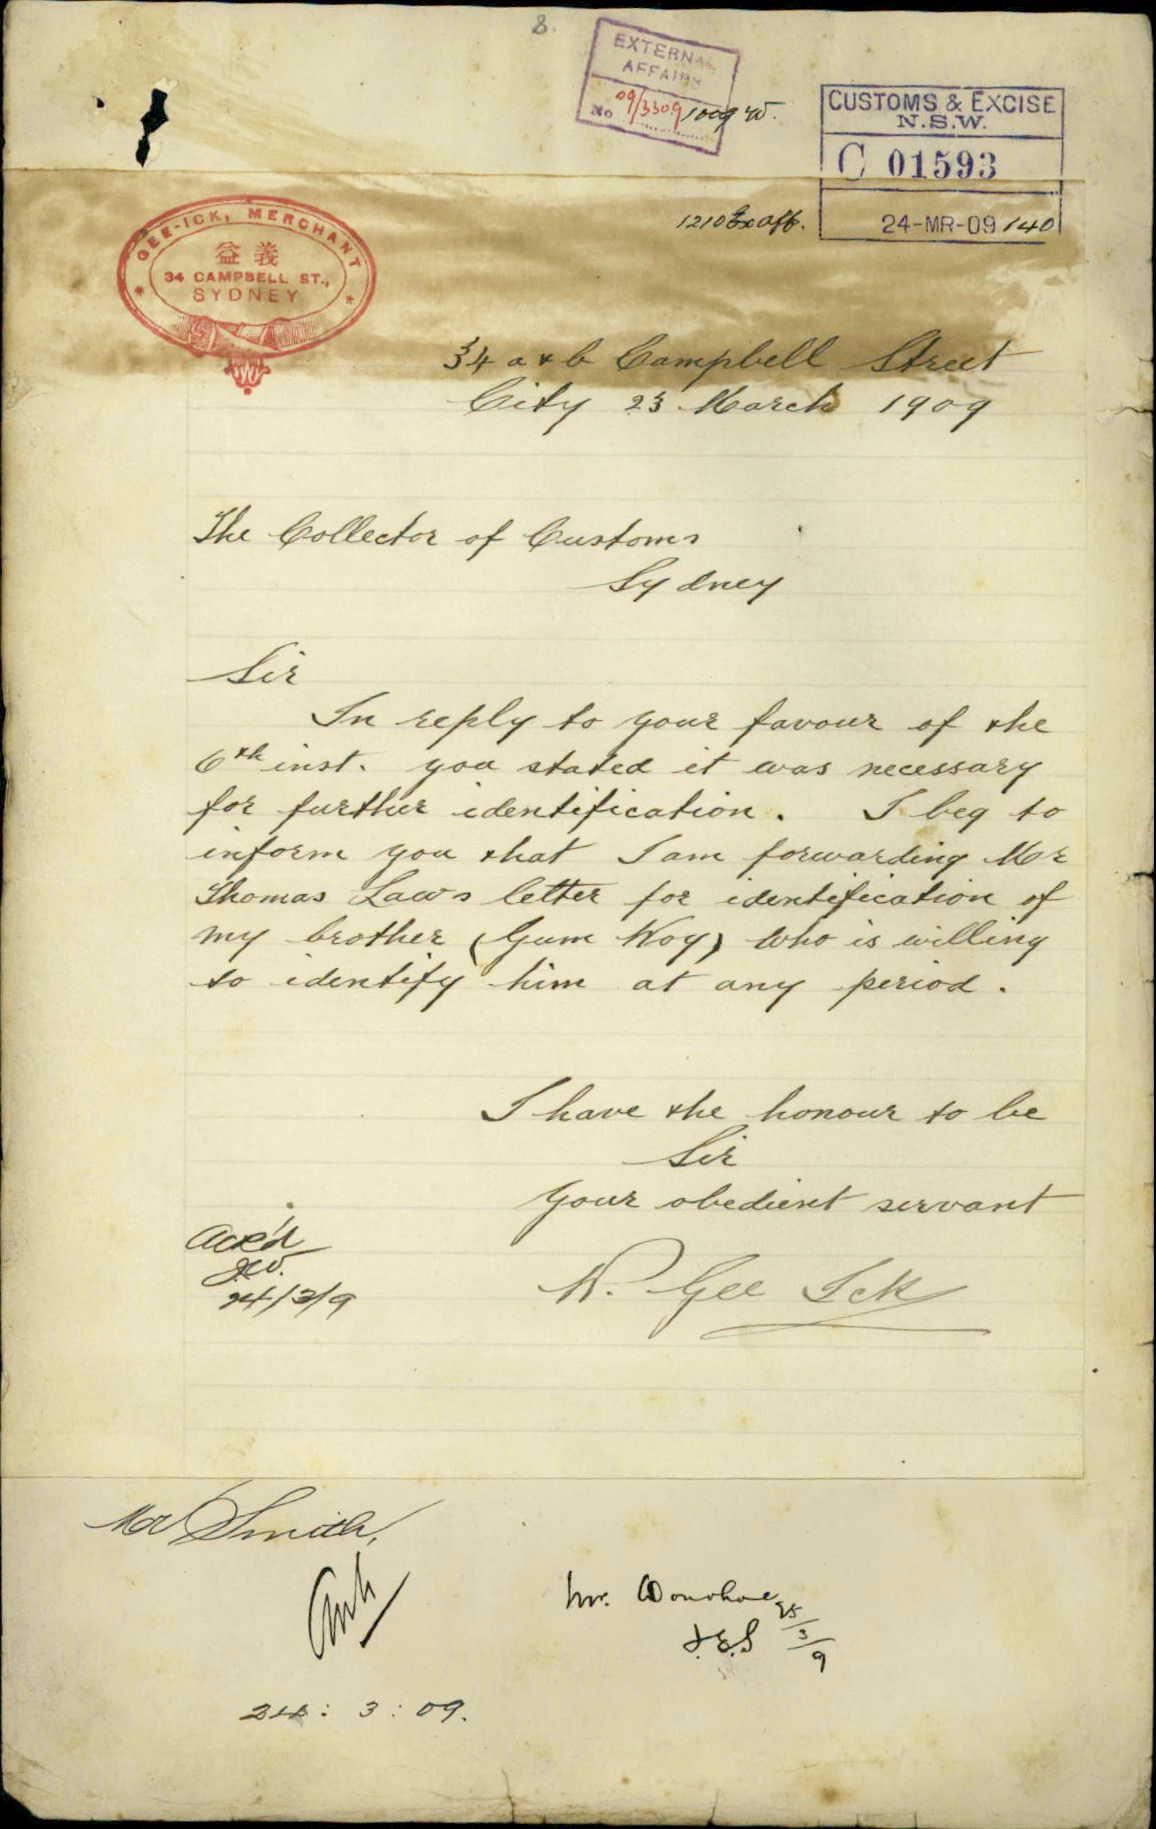 8.
EXTERNAL
AFFAIRS
No 09/3309
1009 W.
CUSTOMS & EXCISE
N.S.W.
C 01593
24-MR-09 140
1210 Ex aff.
GEE-ICK, MERCHANT
益義
34 CAMPBELL ST.,
SYDNEY
34 a & b Campbell Street
City 23 March 1909
The Collector of Customs
Sydney
Sir
In reply to your favour of the
6th inst. you stated it was necessary
for further identification. I beg to
inform you that I am forwarding Mr
Thomas Laws letter for identification of
my brother (Gum Koy) who is willing
to identify him at any period.
I have the honour to be
Sir
Your obedient servant
W. Gee Ick
Ack'd
24/3/9
Mr Smith,
Mr. Donohoe 25/3/9
J.E.S
24: 3: 09.